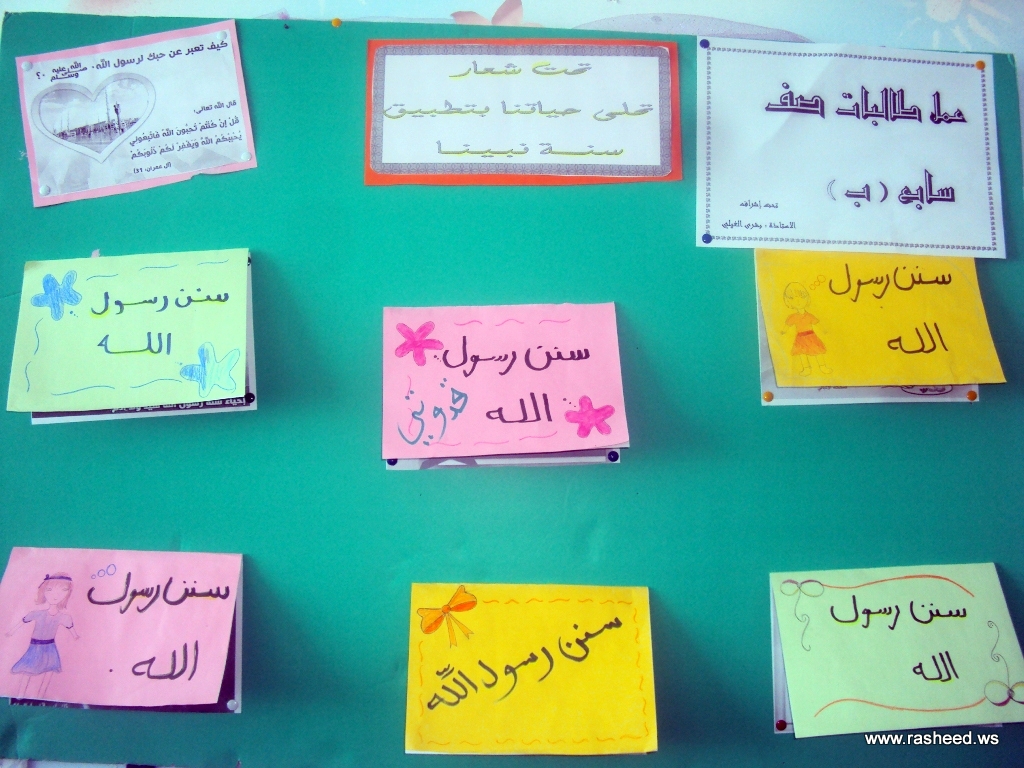 كيف تعبر عن حبك لرسول الله صلى الله عليه وسلم ؟
قال الله تعالى:
قُلْ إِن كُنتُمْ تُحِبُّونَ اللَّهَ فَاتَّبِعُونِي
يُحْبِبْكُمُ اللَّهُ وَيَغْفِرْ لَكُمْ ذُنُوبَكُمْ
(آل عمران: 31)
تحت شعار
تحلى حياتنا بتطبيق
سنة نبينا
عمل طالبات صف
سابع (ب)
تحت إشراف
الاستاذة : بشرى
سنن رسول
الله
إحياء سنة رسول الله
سنن رسول
الله
قدوتي
سنن رسول
الله
سنن رسول
الله
سنن رسول اللّه
سنن رسول
الله
www.rasheed.ws